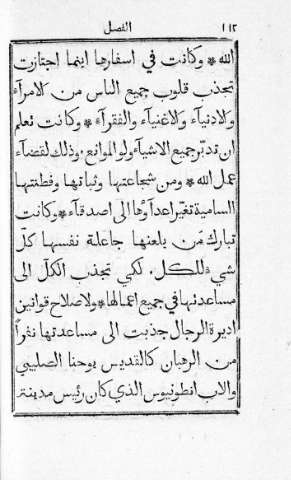 ١١٢ الفصل
الله * وكانت في اسفارها اينما اجتازت
تجذب قلوب جميع الناس من الامرآء
والادنيآء والاغنيآء والفقرآء * وكانت تعلم
ان تدبّر جميع الاشيآء ولو الموانع. وذلك لقضآء
عمل الله * ومن شجاعتها وثباتها وفطنتها
السامية تغير اعدآوها الى اصدقآء * وكانت
تبارك مَن يلعنها جاعلة نفسها كلّ
شيء للكل. لكي تجذب الكلّ الى
مساعدتها في جميع اعمالها * ولاصلاح قوانين
اديرة الرجال جذبت الى مساعدتها نفرًا
من الرهبان كالقديس يوحنا الصليبي
والاب انطونيوس الذي كان رئيس مدينة